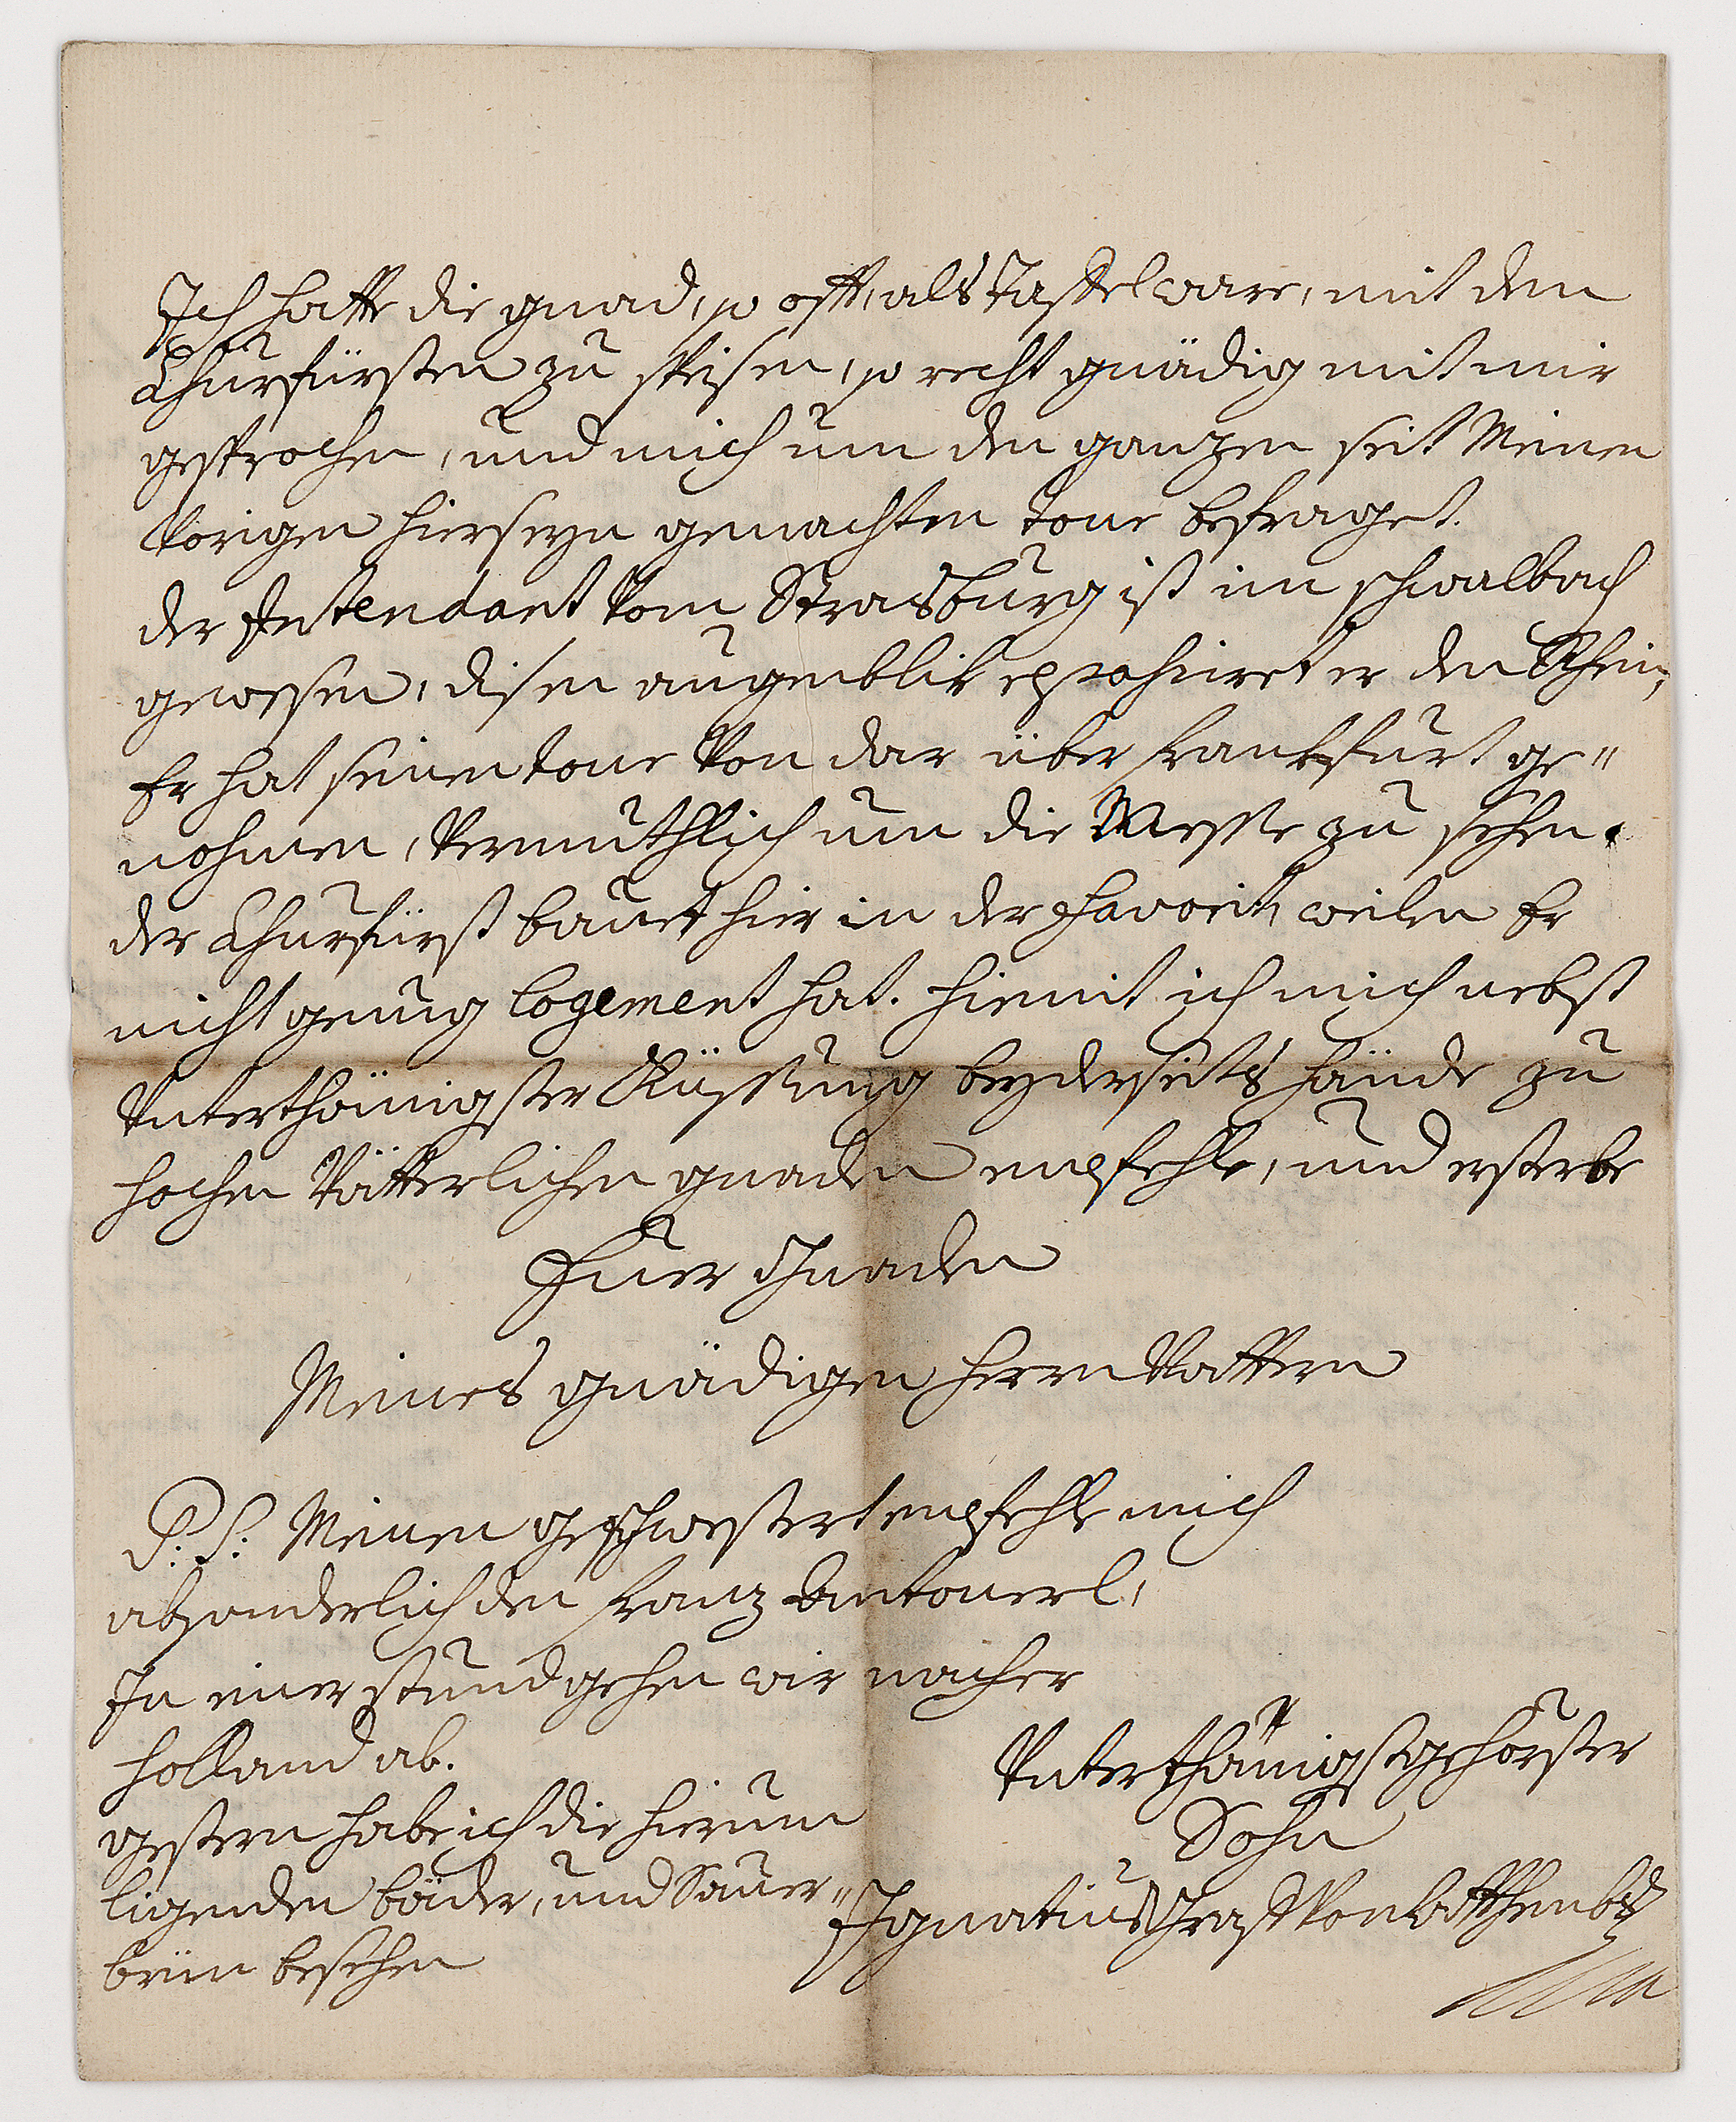 Ich hatte die gnad, so offt, als Taffel ware, mit dem
Churfürsten zu speisen, so recht gnädig mit mir
gesprochen, und mich um den ganzen seit Meinen
Vorigen hierseyn gemachten tour befraget.
der Intendant Vom Strasburg ist im schwalbach
gewesen, disen augenblik er den Rhein,
Er hat seinen tour Von dar über frankfurt ge=
nohmen, Vermuthlich um die Messe zu sehen.
der Churfürst bauet hier in der favorit, weilen Er
nicht genug logement hat. hiemit ich mich nebst
Unterthänigster Küssung beyderseits hände zu
hochen Vätterlichen gnaden empfehle, und ersterbe
Euer Gnaden
Meines gnädigen herrn Vattern
P: S: Meinen geschwestert empfehle mich
absonderlich den franz Antonerl,
In einer stund gehen wir nacher
holland ab.
gestern habe ich die hierum
ligenden bäder, und Sauer=
brün besehen
Unterthänigst gehorster
Sohn
Ignatius Graf Von